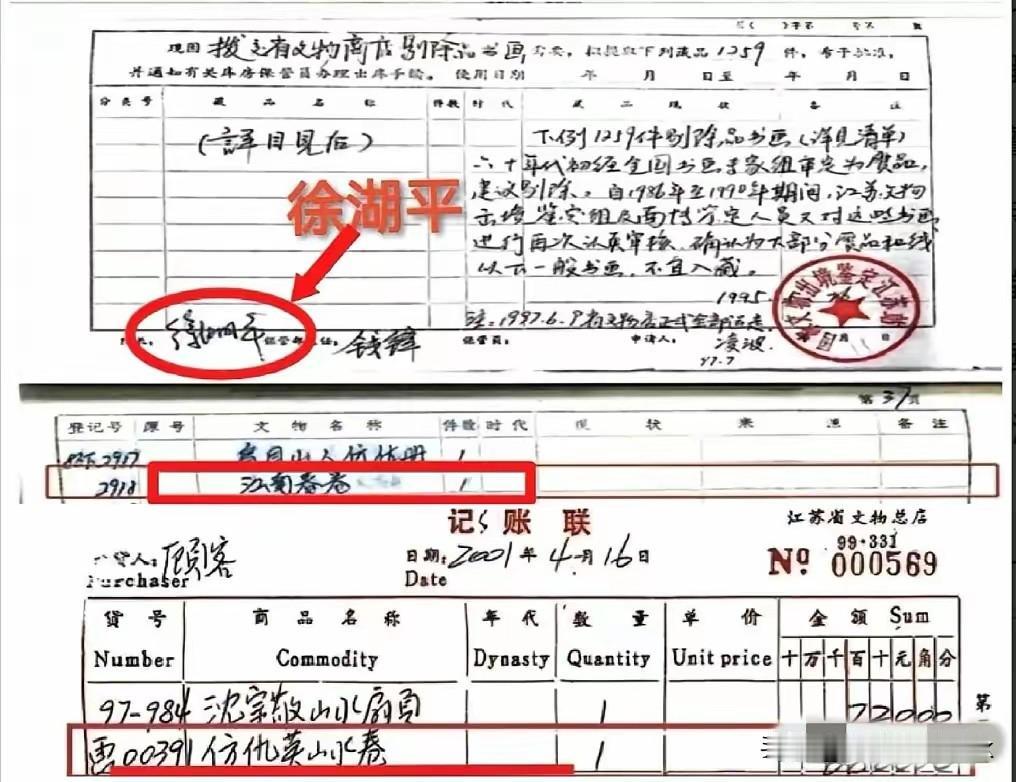 现因拨交省文物商店剔除品书画需要，拟提取下列藏品1259件，希予批准，
并通知有关库房保管员办理出库手续。使用日期 年 月 日至 年 月 日
分类号 藏品名称 件数 时代 藏品现状 备注
(詳目見后)
下列1259件剔除品书画(详见清单)
六十年代初经全国书画专家组审定为废品，
建议剔除。自1986年至1990年期间，江苏文物
出境鉴定组及南博鉴定人员又对这些书画
进行再次认真审核，确认为大部分废品和线
以下一般书画，不宜入藏。
徐湖平
1995
注：1997.6.9
徐湖平 保管部主任：钱锋 保管员： 申请人：凌波
97.7
国家文物出境鉴定江苏站
第37页
登记号 原号 文物名称 件数 时代 现状 来源 备注
2917 1
2918 江南春卷 1
记账联
江苏省文物总店
99-331
货人：顾客
Purchaser
日期：2001年4月16日
Date
Nº 000569
货号 商品名称 年代 数量 单价 金额 Sum
Number Commodity Dynasty Quantity Unit price 十万千百十元角分
97-984 沈宗敬山水扇頁 1 72000
画00391 仿仇英山水卷 1
第